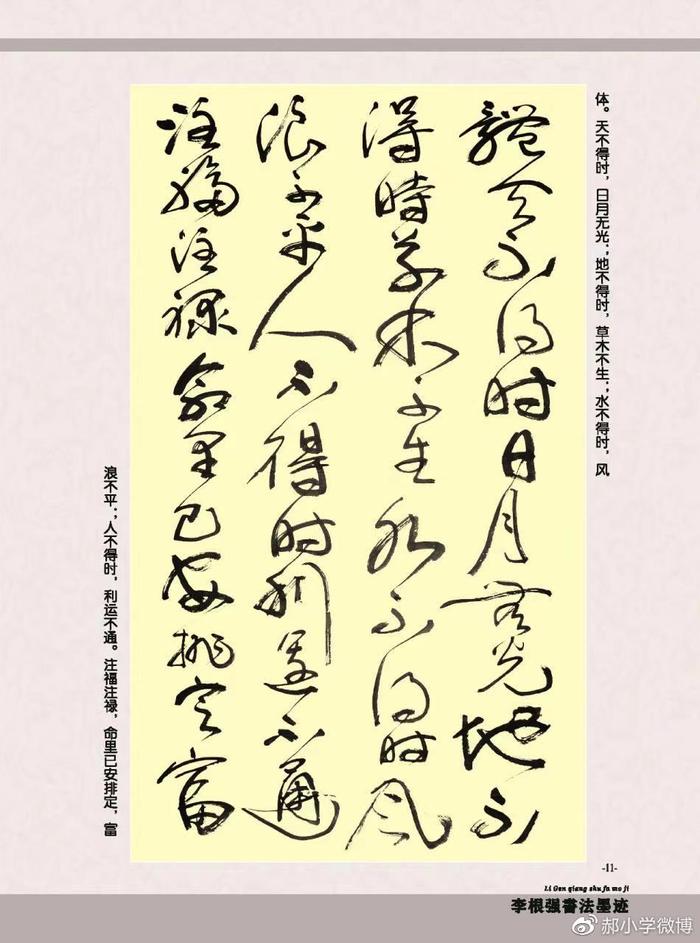 体。天不得时，日月无光；地不得时，草木不生；水不得时，风
體天不得时日月无光地不
得時草木不生水不得时风
浪不平人不得时利运不通
注福注禄命里已安排定富
浪不平；人不得时，利运不通。注福注禄，命里已安排定，富
-11-
Li Gen qiang shu fa mo ji
李根强書法墨迹
郝小学微博